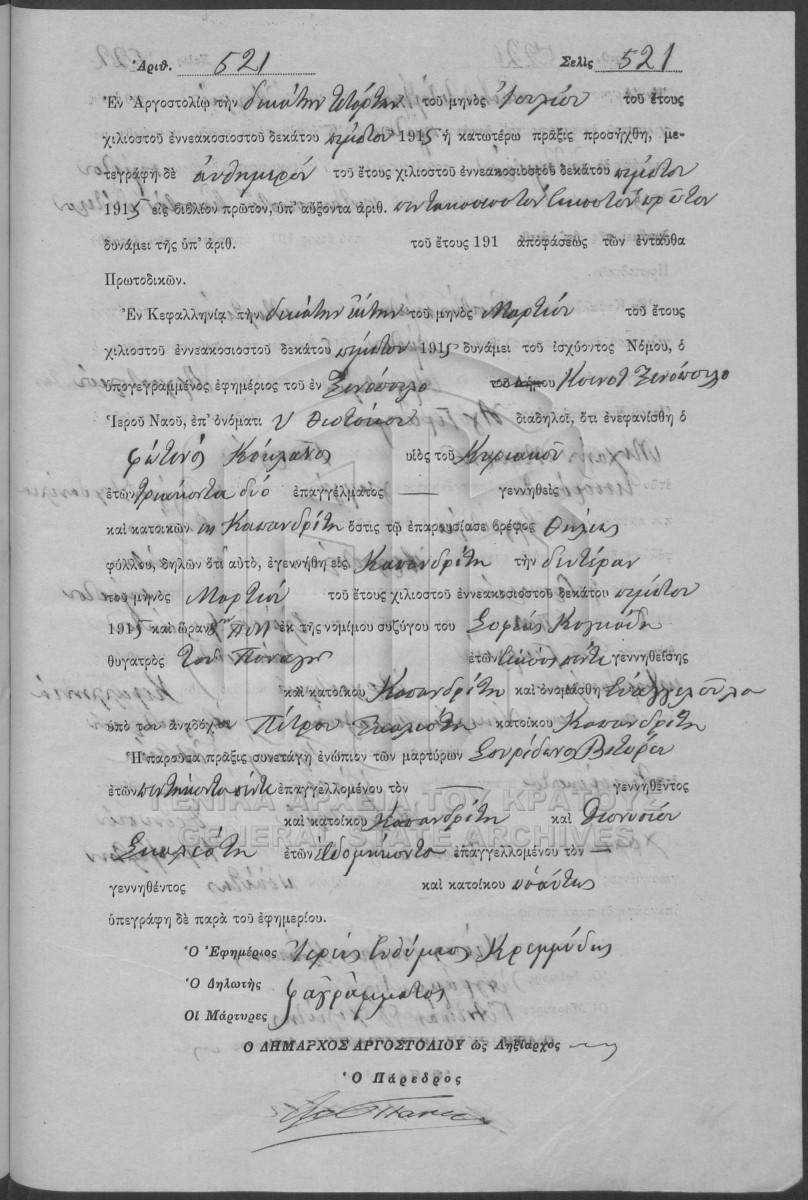 Ἀριθ. 521 Σελὶς 521
Ἐν Ἀργοστολίῳ τὴν δεκάτην τετάρτην τοῦ μηνὸς Ἰουλίου τοῦ ἔτους
χιλιοστοῦ ἐννεακοσιοστοῦ δεκάτου πέμπτου 1915 ἡ κατωτέρω πρᾶξις προσήχθη, με-
τεγράφη δὲ αὐθημερόν τοῦ ἔτους χιλιοστοῦ ἐννεακοσιοστοῦ δεκάτου πέμπτου
1915 εἰς βιβλίον πρῶτον, ὑπ' αὔξοντα ἀριθ. πεντακοσιοστόν εἰκοστόν πρῶτον
δυνάμει τῆς ὑπ' ἀριθ. τοῦ ἔτους 191 ἀποφάσεως τῶν ἐνταῦθα
Πρωτοδικῶν.
Ἐν Κεφαλληνίᾳ τὴν δεκάτην τοῦ μηνὸς Μαρτίου τοῦ ἔτους
χιλιοστοῦ ἐννεακοσιοστοῦ δεκάτου πέμπτου 1915 δυνάμει τοῦ ἰσχύοντος Νόμου, ὁ
ὑπογεγραμμένος ἐφημέριος τοῦ ἐν Ξενόπουλο τοῦ Δήμου Κοινοτ Ξενόπουλο
Ἱεροῦ Ναοῦ, ἐπ' ὀνόματι Υ Θεοτόκου διαδηλοῖ, ὅτι ἐνεφανίσθη ὁ
φωτεινός υἱὸς τοῦ Κυριακοῦ
ἐτῶν τριάκοντα δύο ἐπαγγέλματος — γεννηθεὶς
καὶ κατοικῶν εἰς Καπανδρίτη ὅστις τῷ ἐπαρουσίασε βρέφος θήλεως
φύλλου, δηλῶν ὅτι αὐτὸ, ἐγεννήθη εἰς Καπανδρίτη τὴν δευτέραν
τοῦ μηνὸς Μαρτίου τοῦ ἔτους χιλιοστοῦ ἐννεακοσιοστοῦ δεκάτου πέμπτου
1915 καὶ ὥραν π.μ. ἐκ τῆς νομίμου συζύγου του Σοφίας
θυγατρὸς τοῦ Πανάγη ἐτῶν εἴκοσι πέντε γεννηθείσης
καὶ κατοίκου Καπανδρίτη καὶ ὀνομάσθη Εὐαγγελοῦλα
ὑπὸ τοῦ ἀναδόχου Πέτρου Σκαλιότη κατοίκου Καπανδρίτη
Ἡ παροῦσα πρᾶξις συνετάγη ἐνώπιον τῶν μαρτύρων Σπυρίδωνα
ἐτῶν πεντήκοντα πέντε ἐπαγγελλομένου τὸν — γεννηθέντος
ΓΕΝΙΚΑ ΑΡΧΕΙΑ ΤΟΥ ΚΡΑΤΟΥΣ
καὶ κατοίκου Καπανδρίτη καὶ Διονυσίου
GENERAL STATE ARCHIVES
Σκαλιότη ἐτῶν ἑβδομήκοντα ἐπαγγελλομένου τὸν —
γεννηθέντος καὶ κατοίκου ὡσαύτως
ὑπεγράφη δὲ παρὰ τοῦ ἐφημερίου.
Ὁ Ἐφημέριος Ἱερεύς Εὐθύμιος Κρεμμύδης
Ὁ Δηλωτὴς ἀγράμματος
Οἱ Μάρτυρες
Ο ΔΗΜΑΡΧΟΣ ΑΡΓΟΣΤΟΛΙΟΥ ὡς Ληξίαρχος
Ὁ Πάρεδρος